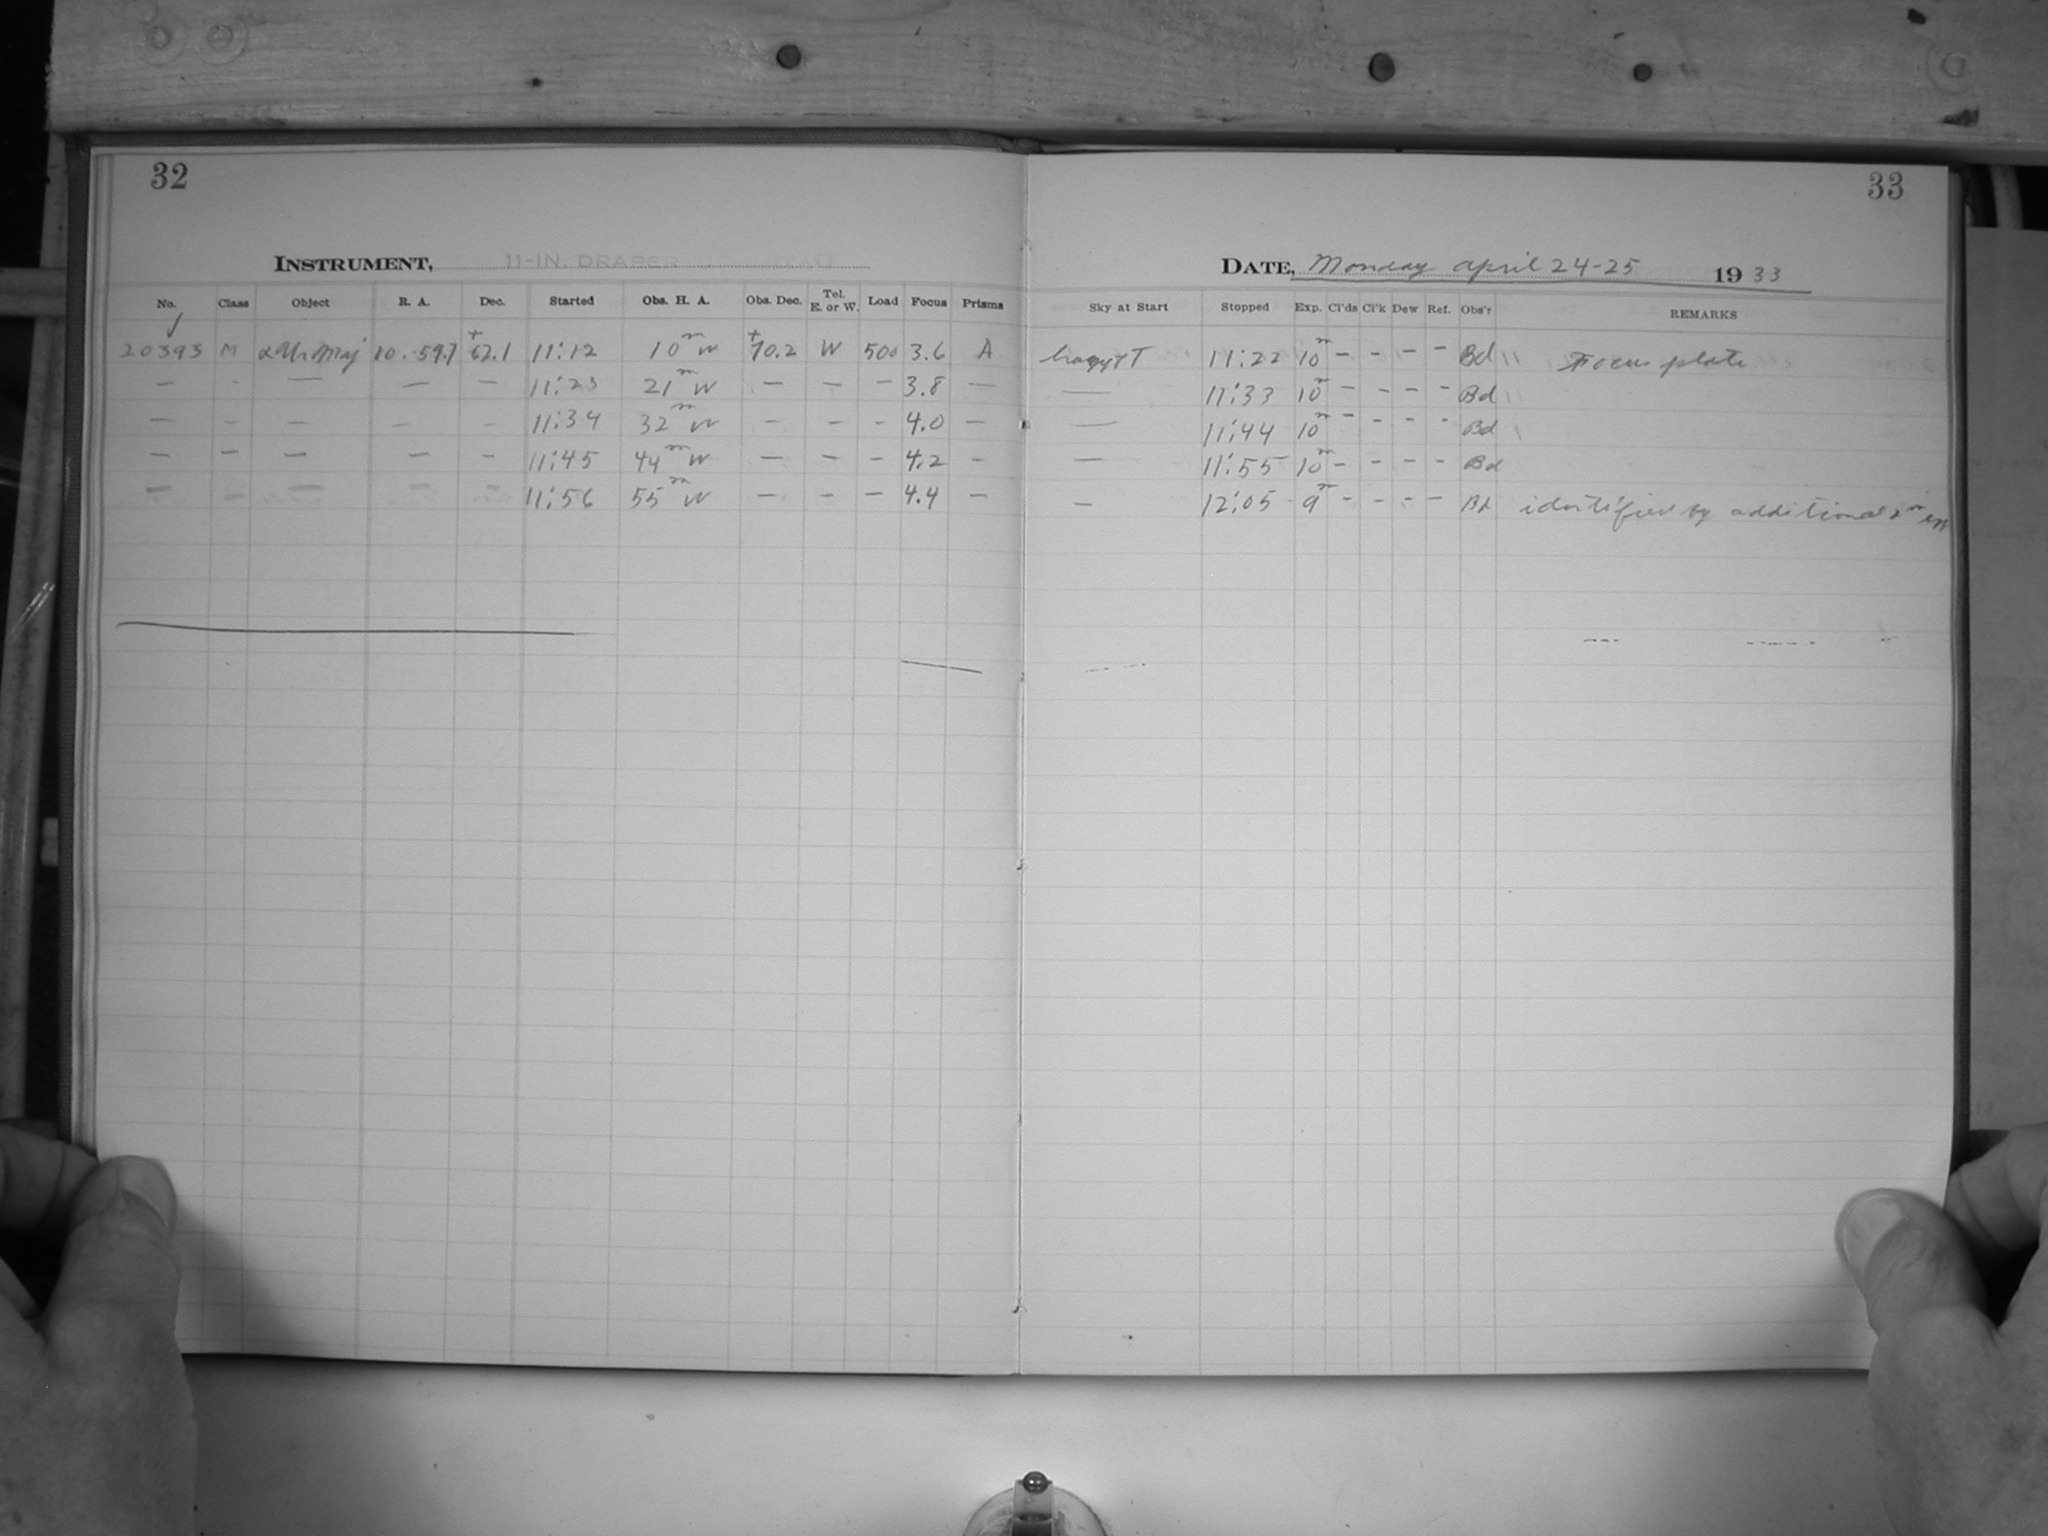 32
33
INSTRUMENT, 11-IN. DRAPER
DATE, Monday April 24-25 1933
No. Class Object R. A. Dec. Started Obs. H. A. Obs. Dec. Tel. E. or W. Load Focus Prisms Sky at Start Stopped Exp. Cl'ds Cl'k Dew Ref. Obs'r REMARKS
✓
20393 M α Ur Maj 10. 59.7 +62.1 11:12 10m W +70.2 W 500 3.6 A hazy T 11:22 10m - - - - Bd Focus plate
— - — — — 11:23 21m W — — — 3.8 — — 11:33 10m — - - - Bd
— - — — - 11:34 32m W — — - 4.0 — — 11:44 10m — - - - Bd
— — — — - 11:45 44m W — — — 4.2 - — 11:55 10m - - - - Bd
— — — — — 11:56 55m W — - — 4.4 — — 12:05 9m - - - - Bd identified by additional 2m